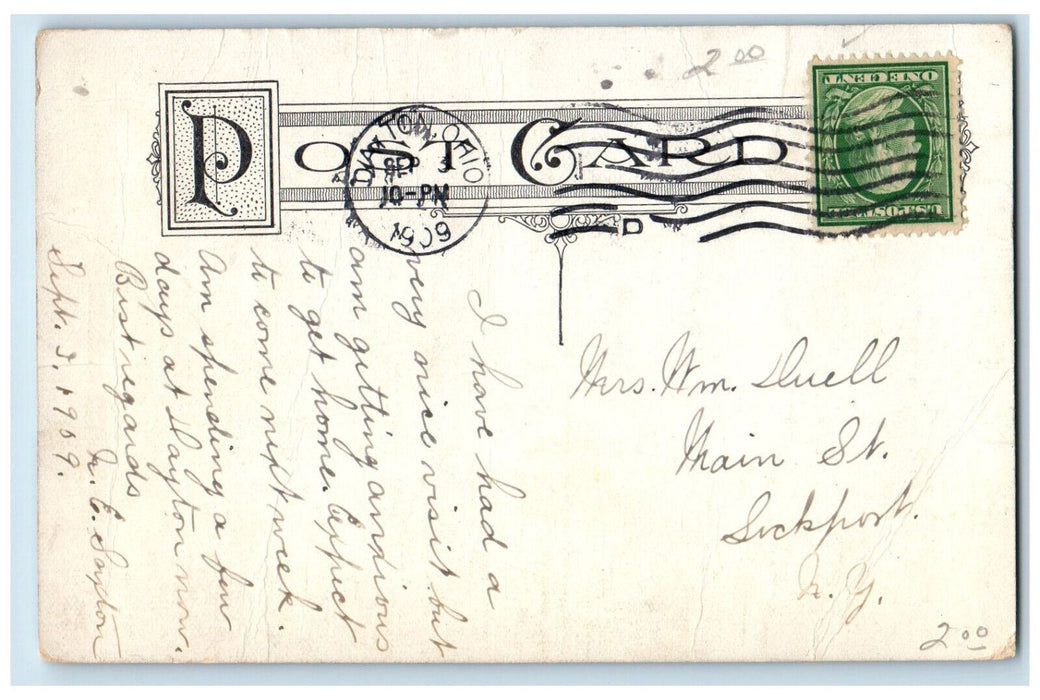 2 00
POST CARD
DAYTON, OHIO
SEP 3
10-PM
1909
D
ONE CENT
U.S. POSTAGE
I have had a
very nice visit but
am getting anxious
to get home. Expect
to come next week.
Am spending a few
days at Dayton now.
Best regards
M. E. Saxton
Sept. 3, 1909.
Mrs. Wm. Duell
Main St.
Lockport.
N. Y.
2 00